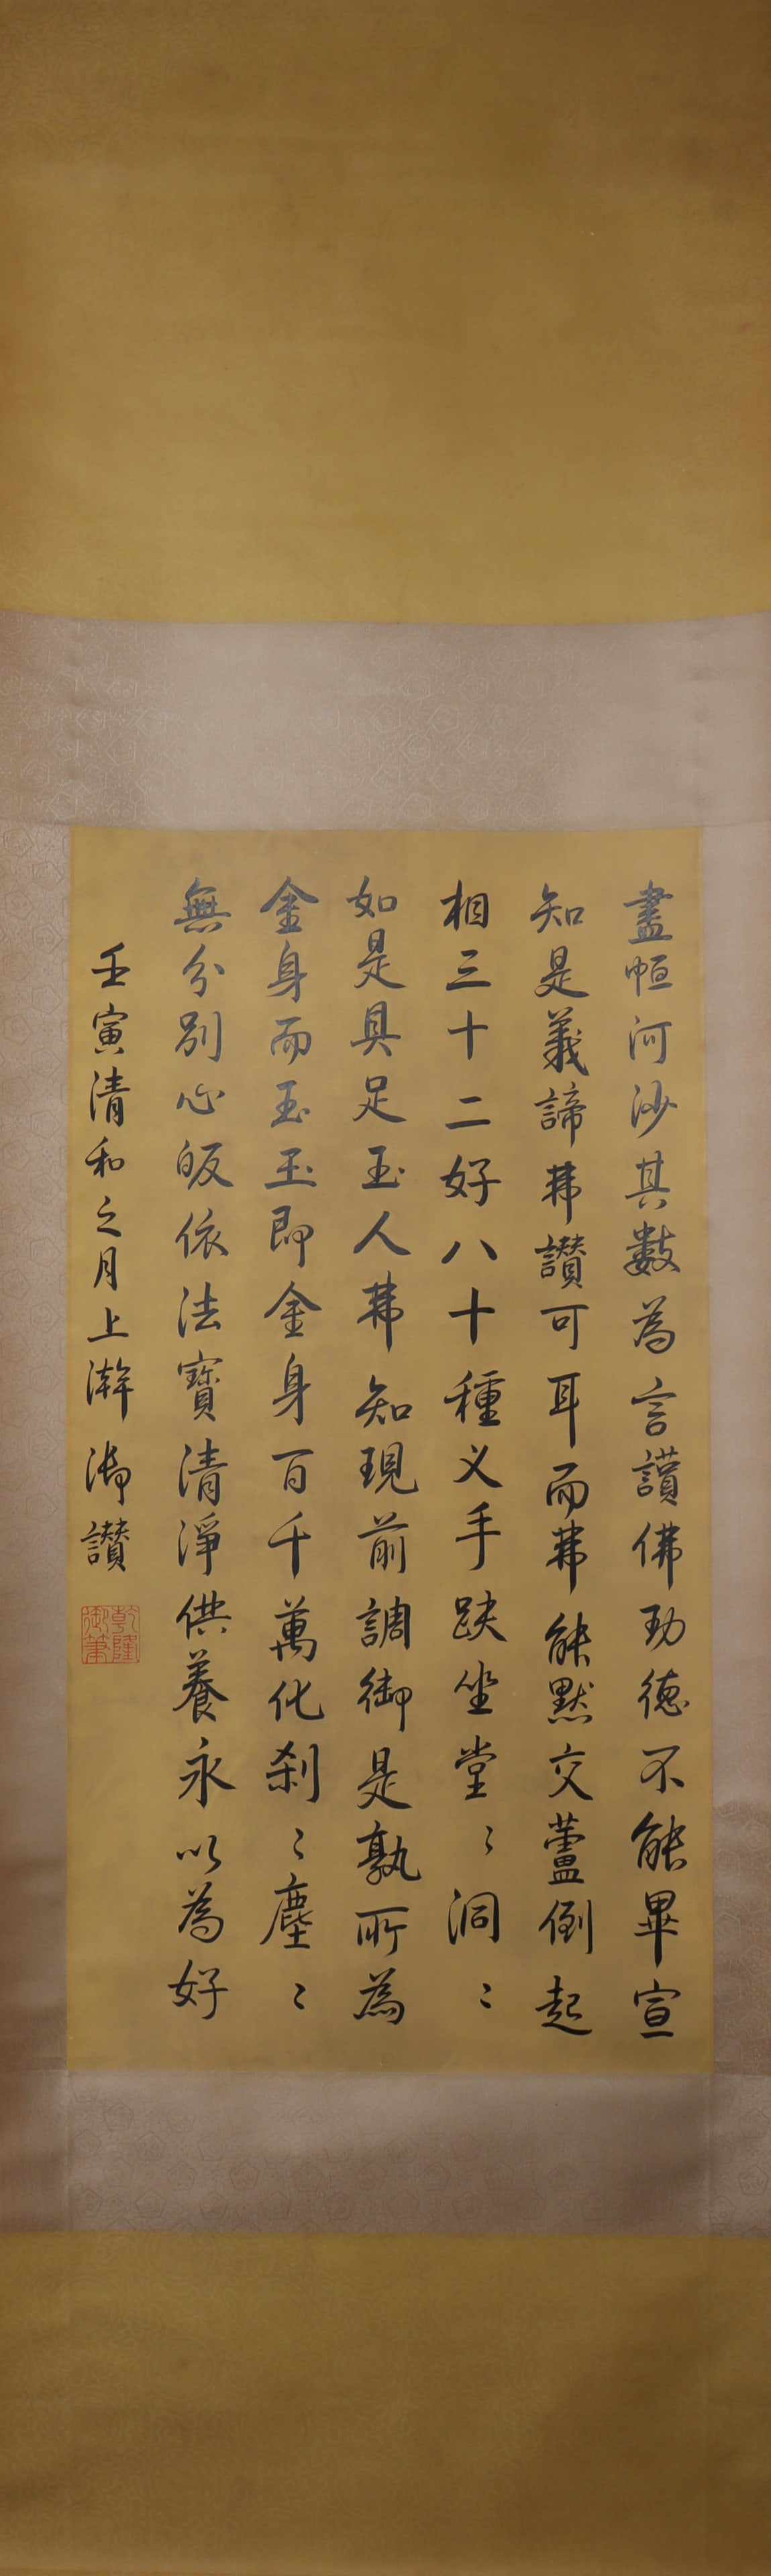 盡恒河沙其數為言讚佛功德不能畢宣
知是義諦弗讚可耳而弗能默交蘆倒起
相三十二好八十種叉手趺坐堂〻洞〻
如是具足玉人弗知現前調御是孰所為
金身而玉玉即金身百千萬化刹〻塵〻
無分別心皈依法寶清淨供養永以為好
壬寅清和之月上澣御讚
乾隆御筆